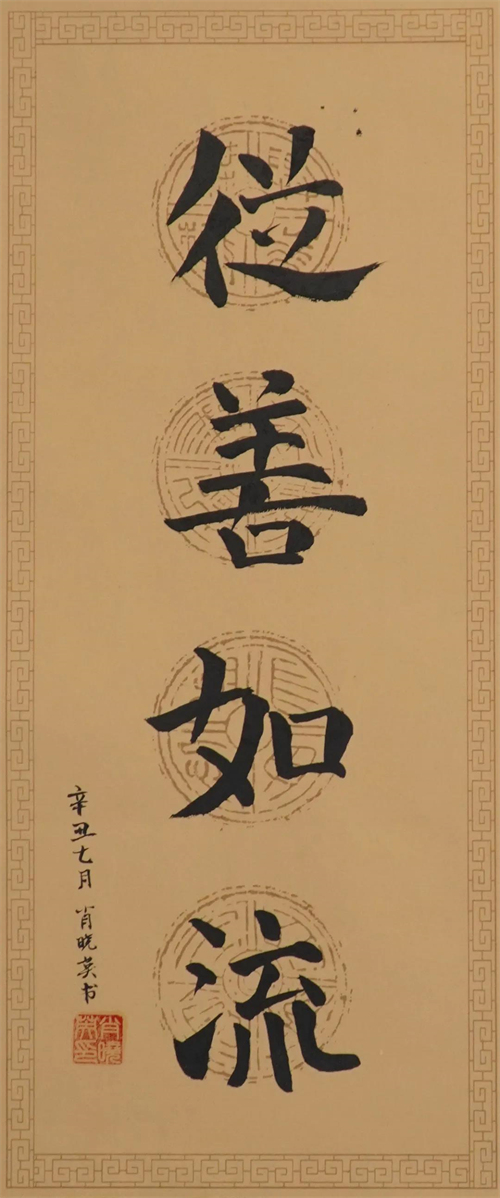 從善如流
辛丑七月 肖晓英书
肖晓英印